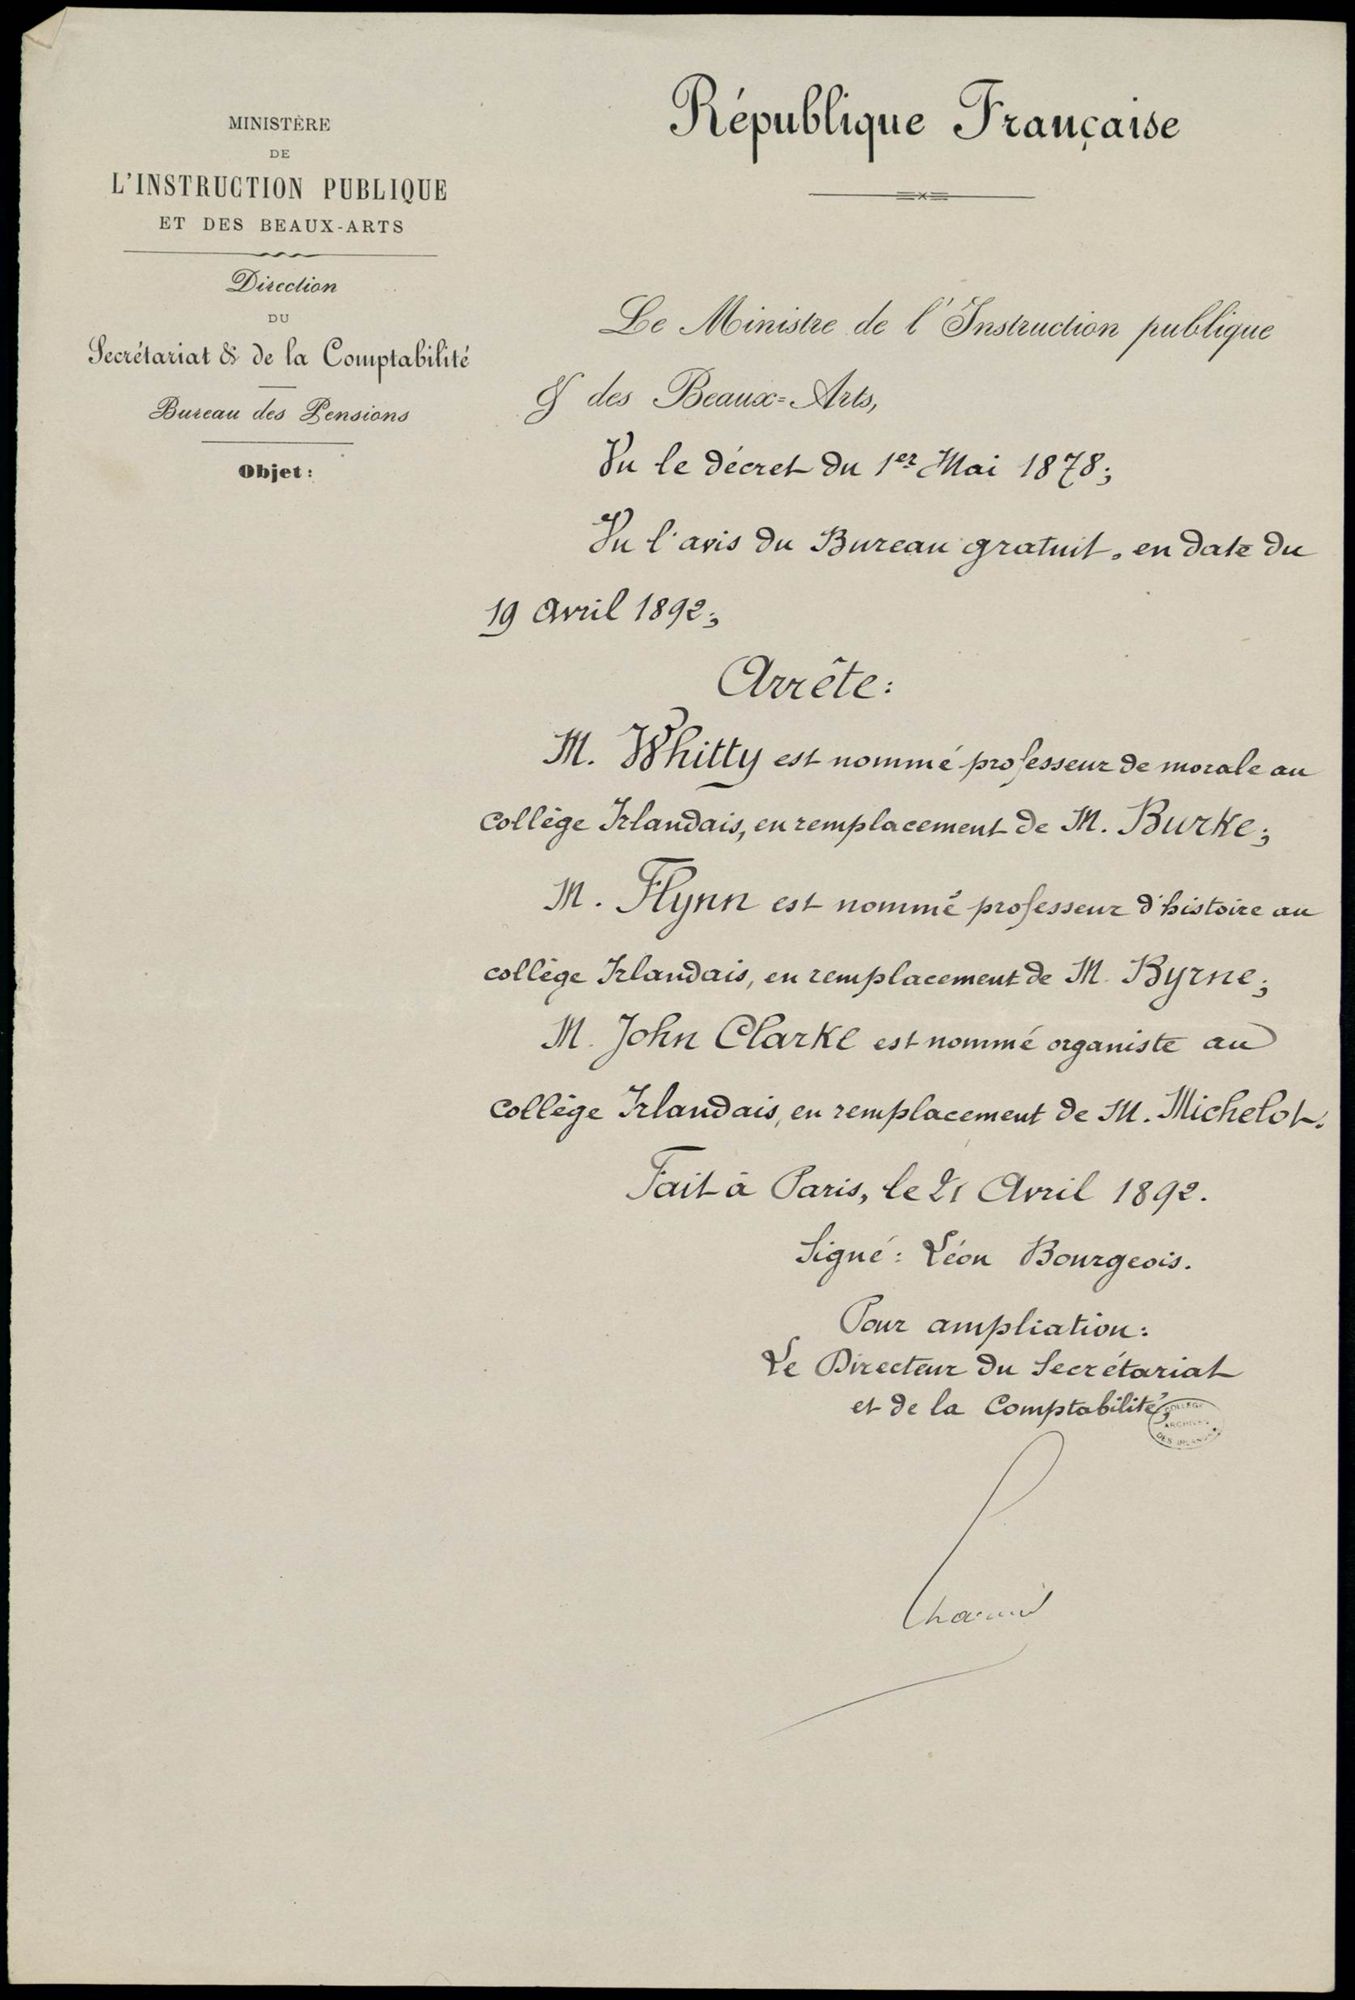 MINISTÈRE
DE
L'INSTRUCTION PUBLIQUE
ET DES BEAUX-ARTS
Direction
DU
Secrétariat & de la Comptabilité
Bureau des Pensions
Objet:
République Française
Le Ministre de l'Instruction publique
& des Beaux=Arts,
Vu le décret du 1er Mai 1878;
Vu l'avis du Bureau gratuit, en date du
19 Avril 1892;
Arrête:
M. Whitty est nommé professeur de morale au
collège Irlandais, en remplacement de M. Burke;
M. Flynn est nommé professeur d'histoire au
collège Irlandais, en remplacement de M. Byrne;
M. John Clarke est nommé organiste au
collège Irlandais, en remplacement de M. Michelot.
Fait à Paris, le 21 Avril 1892.
Signé: Léon Bourgeois.
Pour ampliation:
Le Directeur du Secrétariat
et de la Comptabilité,
COLLEGE
ARCHIVES
DES IRLANDAIS